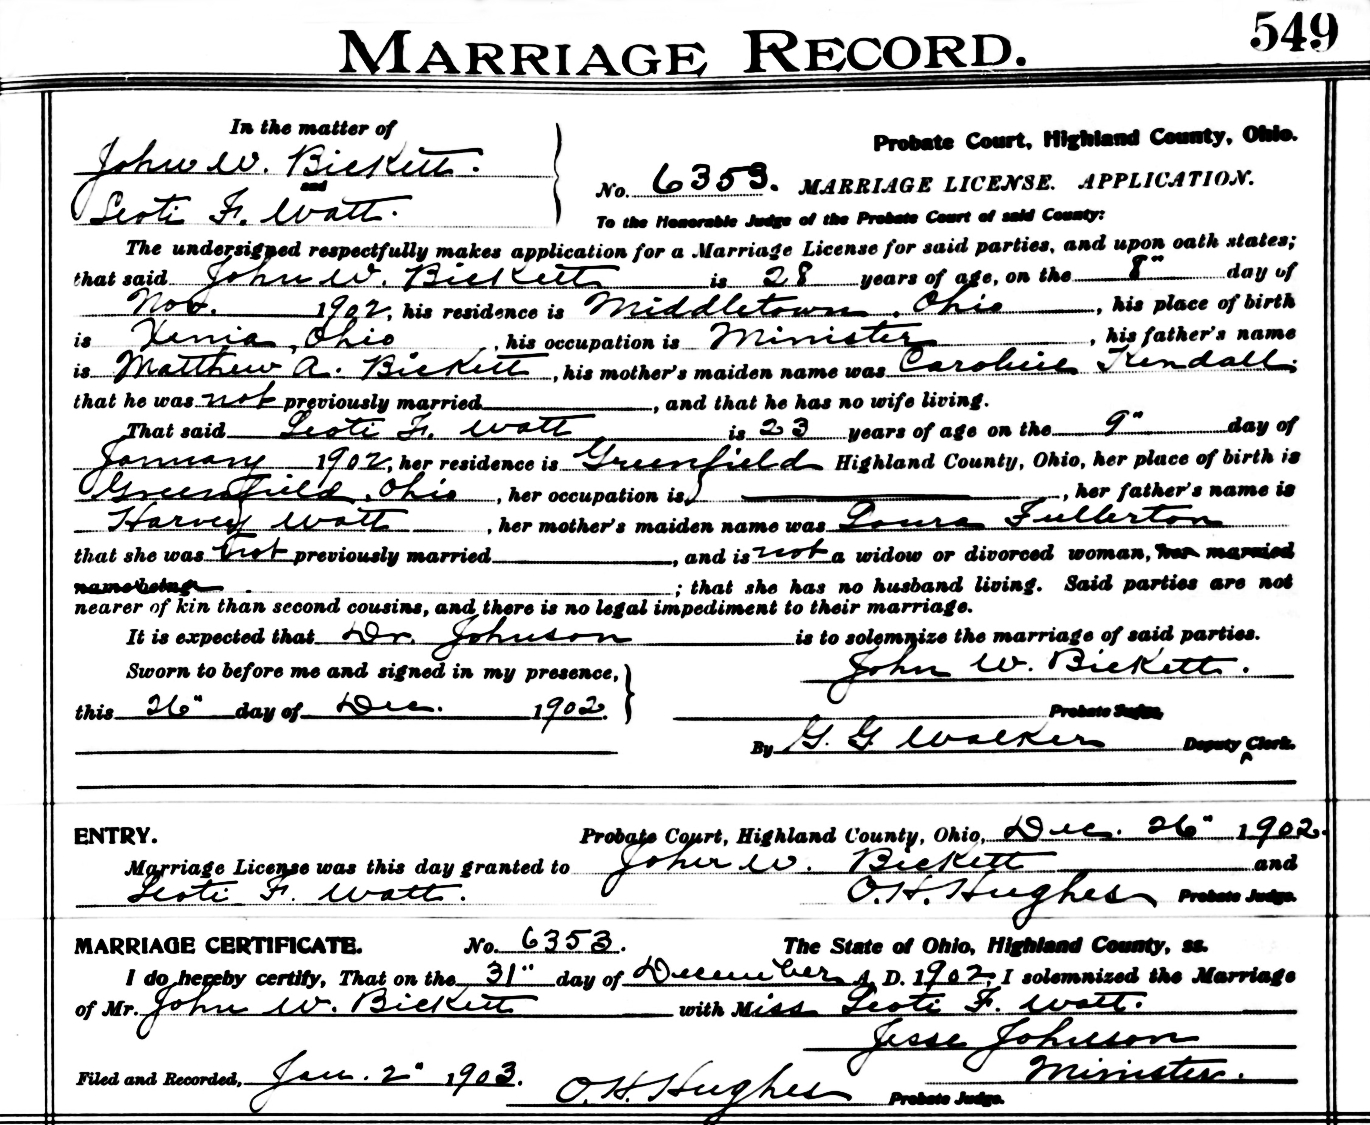 549
MARRIAGE RECORD.
In the matter of
John W. Bickett.
and
Leoti F. Watt.
Probate Court, Highland County, Ohio.
No. 6353. MARRIAGE LICENSE. APPLICATION.
To the Honorable Judge of the Probate Court of said County:
The undersigned respectfully makes application for a Marriage License for said parties, and upon oath states;
that said John W. Bickett is 28 years of age, on the 8" day of
Nov. 1902, his residence is Middletown, Ohio, his place of birth
is Xenia, Ohio, his occupation is Minister, his father's name
is Matthew A. Bickett, his mother's maiden name was Caroline Kendall;
that he was not previously married, and that he has no wife living.
That said Leoti F. Watt is 23 years of age on the 9" day of
January 1902, her residence is Greenfield Highland County, Ohio, her place of birth is
Greenfield, Ohio, her occupation is, her father's name is
Harvey Watt, her mother's maiden name was Laura Fullerton
that she was not previously married, and is not a widow or divorced woman, her married
name being ; that she has no husband living. Said parties are not
nearer of kin than second cousins, and there is no legal impediment to their marriage.
It is expected that Dr. Johnson is to solemnize the marriage of said parties.
Sworn to before me and signed in my presence,
John W. Bickett.
this 26" day of Dec. 1902.
Probate Judge,
By G. G Walker Deputy Clerk.
ENTRY. Probate Court, Highland County, Ohio, Dec. 26" 1902.
Marriage License was this day granted to John W. Bickett and
Leoti F. Watt. O. H. Hughes Probate Judge.
MARRIAGE CERTIFICATE. No. 6353. The State of Ohio, Highland County, ss.
I do hereby certify, That on the 31" day of December A. D. 1902, I solemnized the Marriage
of Mr. John W. Bickett with Miss Leoti F. Watt.
Jesse Johnson
Minister.
Filed and Recorded, Jan. 2" 1903. O. H. Hughes Probate Judge.